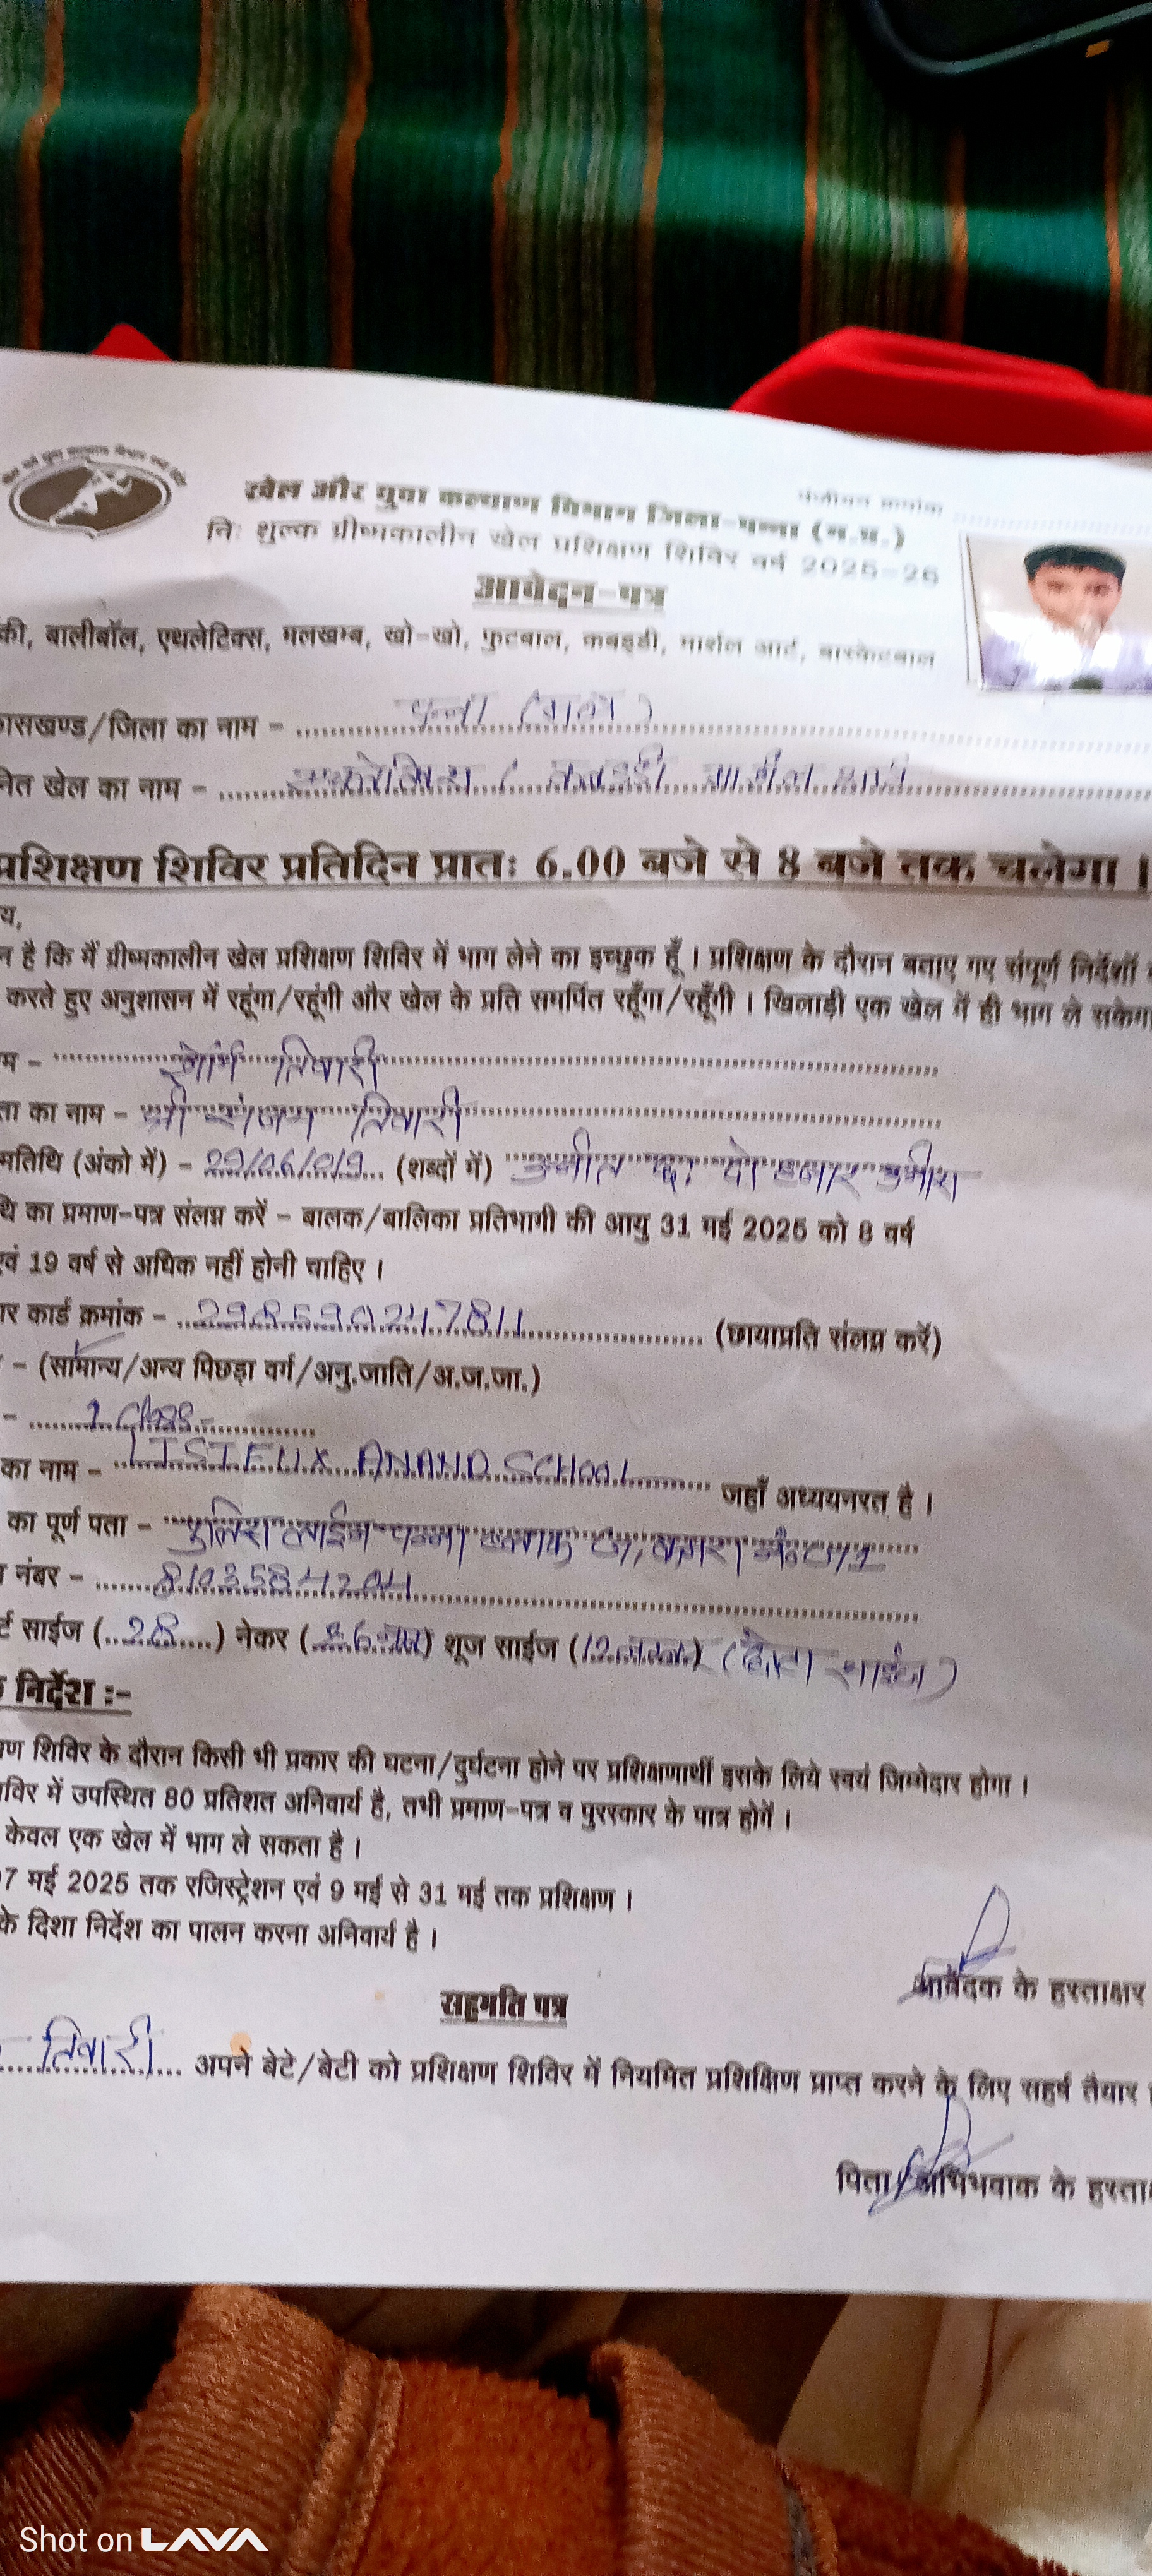 खेल और युवा कल्याण विभाग जिला-पन्ना (म.प्र.)
पंजीयन क्रमांक
निः शुल्क ग्रीष्मकालीन खेल प्रशिक्षण शिविर वर्ष 2025-26
आवेदन-पत्र
की, बालीबॉल, एथलेटिक्स, मलखम्ब, खो-खो, फुटबाल, कबड्डी, मार्शल आर्ट, बास्केटबाल
कासखण्ड/जिला का नाम - पन्ना
नित खेल का नाम - कबड्डी
प्रशिक्षण शिविर प्रतिदिन प्रातः 6.00 बजे से 8 बजे तक चलेगा।
य,
न है कि मैं ग्रीष्मकालीन खेल प्रशिक्षण शिविर में भाग लेने का इच्छुक हूँ। प्रशिक्षण के दौरान बताए गए संपूर्ण निर्देशों
करते हुए अनुशासन में रहूंगा/रहूंगी और खेल के प्रति समर्पित रहूँगा/रहूँगी। खिलाड़ी एक खेल में ही भाग ले सकेगा
म - तिवारी
ता का नाम - श्री तिवारी
मतिथि (अंको में) - (शब्दों में) हजार
थि का प्रमाण-पत्र संलग्न करें - बालक/बालिका प्रतिभागी की आयु 31 मई 2025 को 8 वर्ष
एवं 19 वर्ष से अधिक नहीं होनी चाहिए।
ार कार्ड क्रमांक - 298590247811 (छायाप्रति संलग्न करें)
- (सामान्य/अन्य पिछड़ा वर्ग/अनु.जाति/अ.ज.जा.)
- 1 class
का नाम - LISIEUX ANAND SCHOOL जहाँ अध्ययनरत है।
का पूर्ण पता - पुलिस लाईन पन्ना
नंबर - 8103584204
र्ट साईज (28) नेकर ( ) शूज साईज ( )
निर्देश :-
षण शिविर के दौरान किसी भी प्रकार की घटना/दुर्घटना होने पर प्रशिक्षणार्थी इसके लिये स्वयं जिम्मेदार होगा।
शिविर में उपस्थित 80 प्रतिशत अनिवार्य है, तभी प्रमाण-पत्र व पुरस्कार के पात्र होगें।
केवल एक खेल में भाग ले सकता है।
7 मई 2025 तक रजिस्ट्रेशन एवं 9 मई से 31 मई तक प्रशिक्षण।
के दिशा निर्देश का पालन करना अनिवार्य है।
आवेदक के हस्ताक्षर
सहमति पत्र
तिवारी अपने बेटे/बेटी को प्रशिक्षण शिविर में नियमित प्रशिक्षिण प्राप्त करने के लिए सहर्ष तैयार
पिता/अभिभवाक के हस्ता
Shot on LAVA